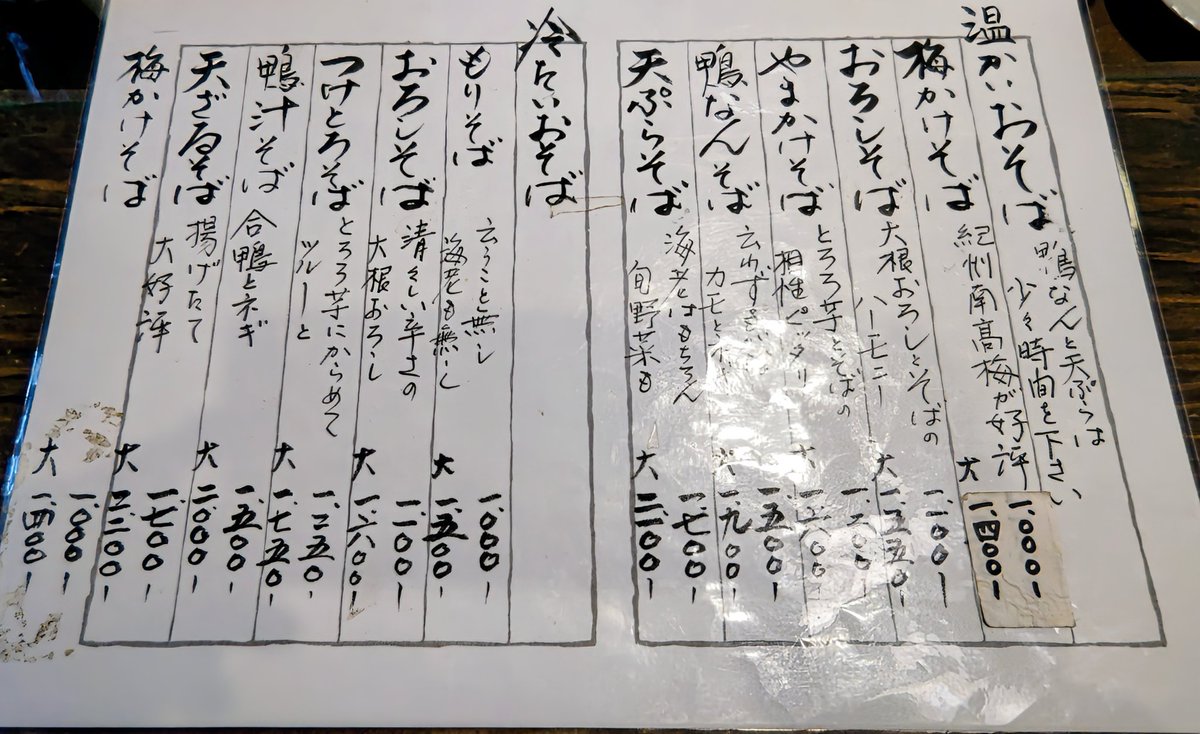 温かいおそば
鴨なんと天ぷらは
少々時間を下さい
梅かけそば
紀州南高梅が好評
一、〇〇〇ー
大 一、四〇〇ー
おろしそば
大根おろしとそばの
ハーモニー
一、一〇〇ー
大 一、五五〇ー
やまかけそば
とろろ芋とそばの
相性ピッタリ
鴨なんそば
云わず
カモと
一、五〇〇ー
一、九〇〇ー
天ぷらそば
海老はもちろん
旬野菜も
一、七〇〇ー
大 二、一〇〇ー
冷たいおそば
もりそば
云うこと無し
海老も無し
一、〇〇〇ー
大 一、五〇〇
おろしそば
清々しい辛さの
大根おろし
一、一〇〇ー
大 一、六〇〇ー
つけとろそば
とろろ芋にからめて
ツルーと
一、二五〇ー
大 一、七五〇ー
鴨汁そば
合鴨とネギ
一、五〇〇ー
大 二、〇〇〇ー
天ざるそば
揚げたて
大好評
一、七〇〇ー
大 二、二〇〇ー
梅かけそば
一、〇〇〇ー
大 一、四〇〇ー